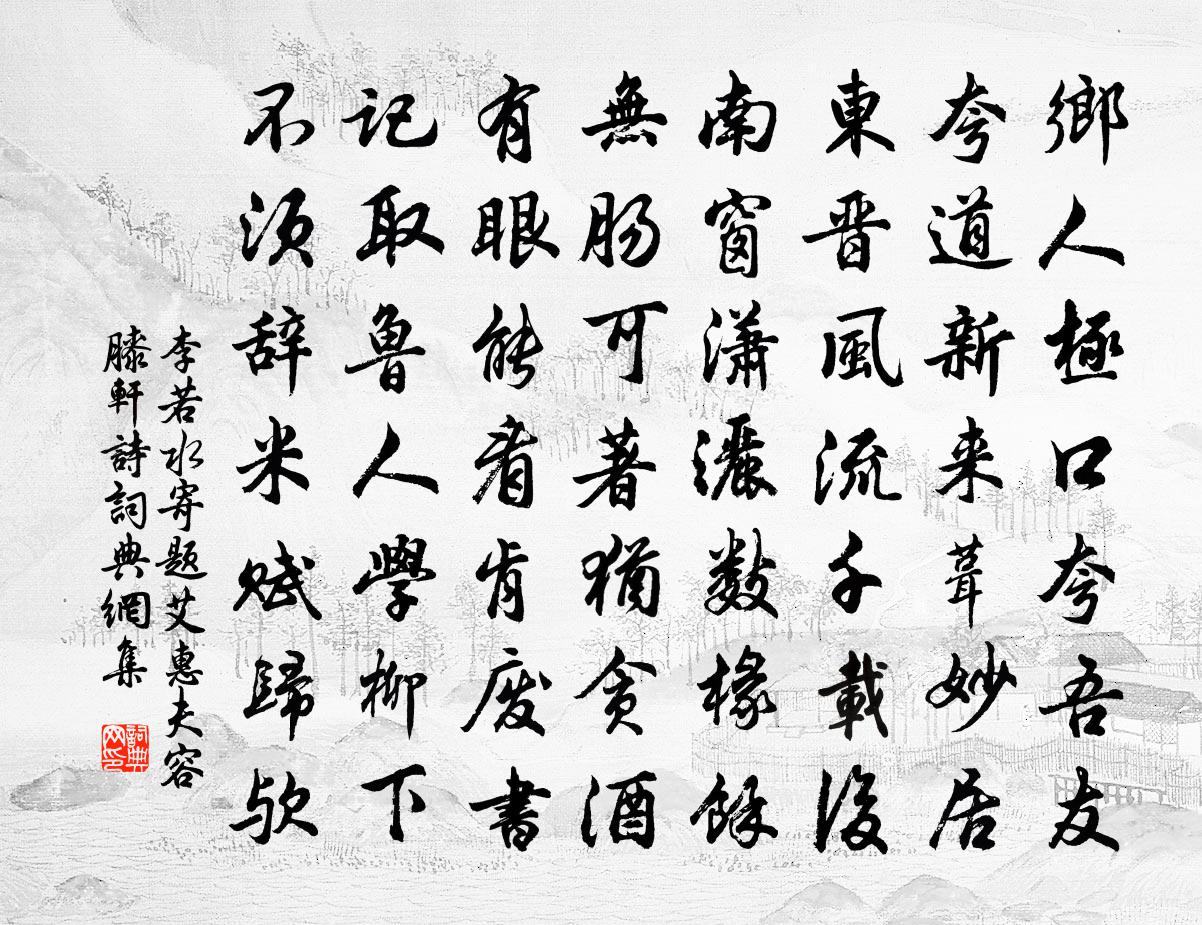 鄉人極口夸吾友
夸道新来葺妙居
東晋風流千載後
南窗瀟灑數椽餘
無腸可著猶貪酒
有眼能看肯废書
記取魯人學柳下
不须辞米赋歸欤
李若水寄题艾惠夫容
膝軒詩詞典網集
詞典网印